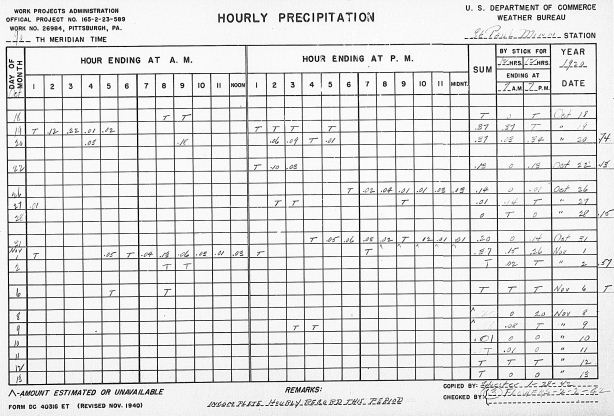 WORK PROJECTS ADMINISTRATION
OFFICAL PROJECT NO. 165-2-23-589
WORK NO. 26984, PITTSBURGH, PA.
TH MERIDIAN TIME
HOURLY PRECIPITATION
U. S. DEPARTMENT OF COMMERCE
WEATHER BUREAU
St Paul Minn STATION
DAY OF MONTH
HOUR ENDING AT A. M.
HOUR ENDING AT P. M.
SUM
BY STICK FOR
HRS. HRS.
ENDING AT
7 A.M. 7 P.M.
YEAR
1920
DATE
1 2 3 4 5 6 7 8 9 10 11 NOON 1 2 3 4 5 6 7 8 9 10 11 MIDNT.
Oct
18 T T T 0 T Oct 18
19 T .12 .22 .01 .02 T T T T .37 .37 T " 19
20 .03 .18 .06 .09 T .01 .37 .03 .34 " 20 .74
22 T .10 .03 .13 0 .13 Oct 22 .13
26 T .02 .04 .01 .01 .03 .03 .14 0 .01 Oct 26
27 .01 T T T .01 .14 T " 27
28 0 T 0 " 28 .15
31 T .05 .06 .03 .02 T .12 .01 .01 .20 0 .14 Oct 31
Nov
1 T .05 T .04 .13 .06 .03 .01 .03 T T .37 .15 .26 Nov 1
2 T T T .02 T " 2 .57
6 T T T T T Nov 6 T
8 0 .20 Nov 8
9 T T .08 T " 9
10 .01 0 0 " 10
11 T .01 0 " 11
12 T T T " 12
13 T 0 T " 13
Λ-AMOUNT ESTIMATED OR UNAVAILABLE
FORM DC 40316 ET (REVISED NOV. 1940)
REMARKS:
INCOMPLETE HOURLY RECORD THIS PERIOD
COPIED BY:
CHECKED BY: